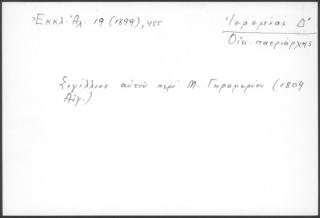 Ἐκκλ. Ἀλ. 19 (1899), 455
Ἱερεμίας Δ'
Οἰκ. πατριάρχης
Σιγίλλιον αὐτοῦ περὶ Μ. Γηρομερίου (1809
Αὔγ.)